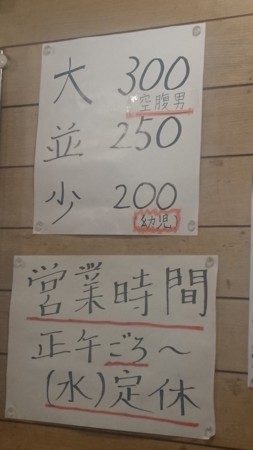 大 300
空腹男
並 250
少 200
(幼児)
営業時間
正午ごろ～
(水)定休